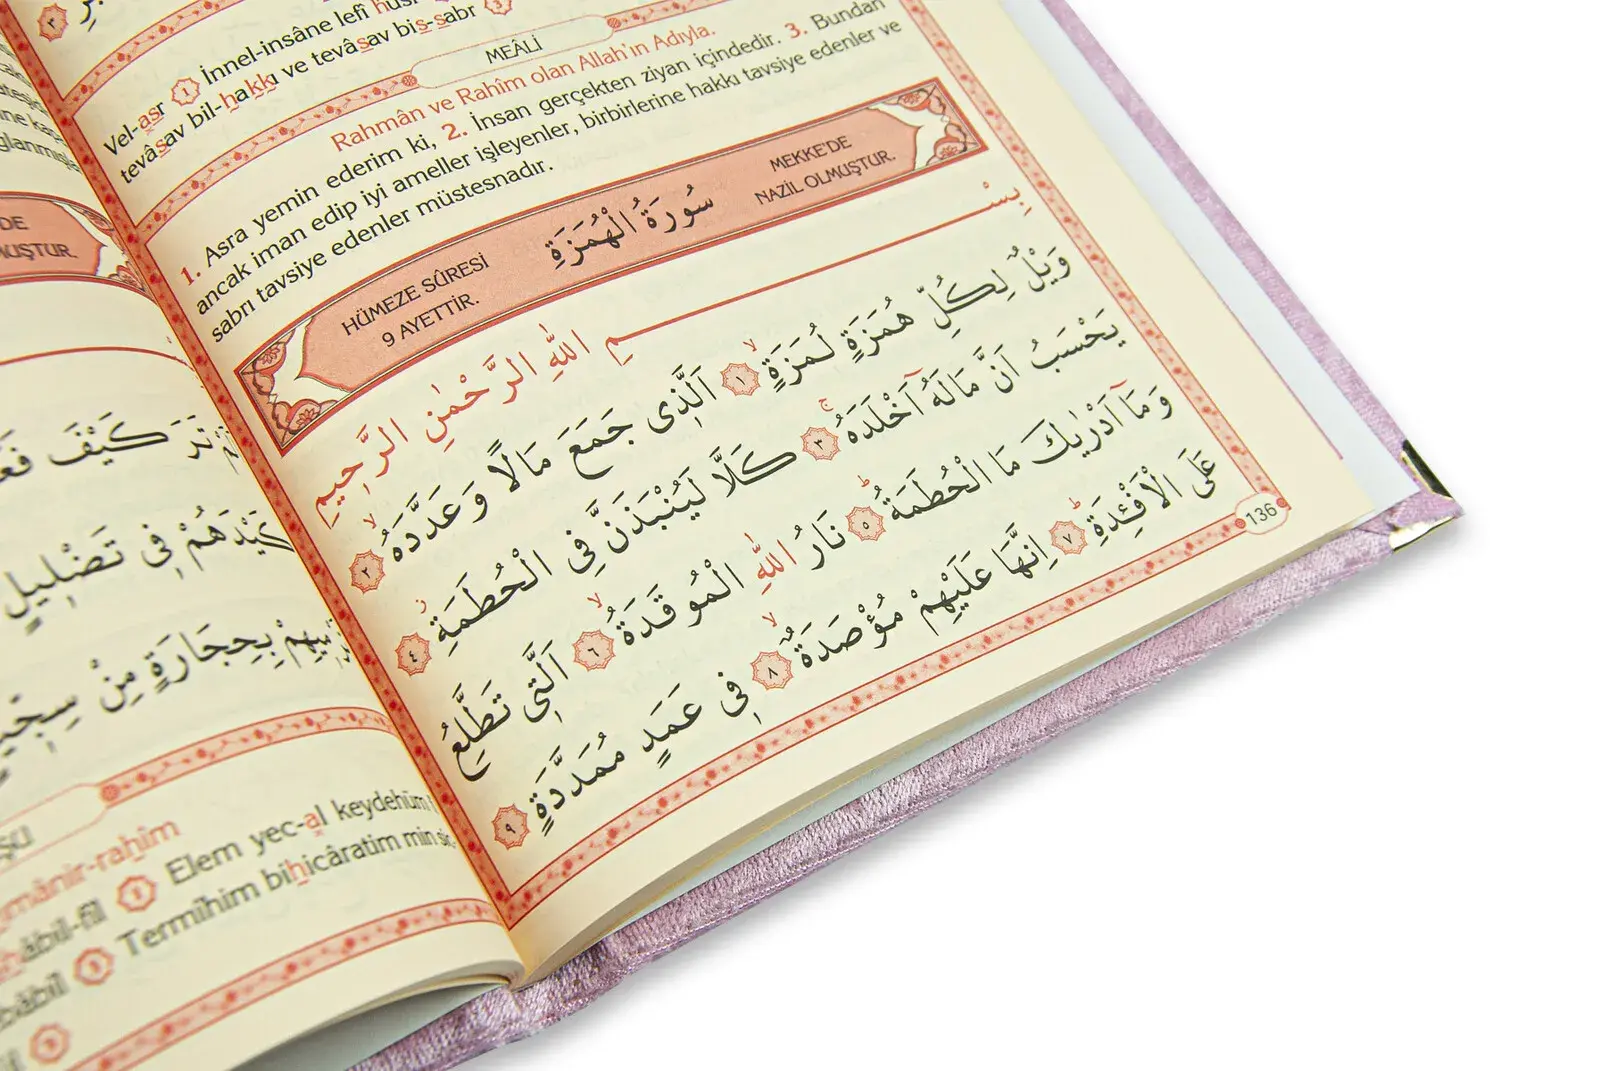 Vel-asr ١ İnnel-insâne lefî husr
tevâsav bil-hakkı ve tevâsav bis-sabr ٣
MEÂLİ
Rahmân ve Rahîm olan Allah'ın Adıyla.
1. Asra yemin ederim ki, 2. İnsan gerçekten ziyan içindedir. 3. Bundan
ancak iman edip iyi ameller işleyenler, birbirlerine hakkı tavsiye edenler ve
sabrı tavsiye edenler müstesnadır.
HÜMEZE SÛRESİ
9 AYETTİR.
سُورَةُ الْهُمَزَةِ
MEKKE'DE
NAZİL OLMUŞTUR.
بِسْمِ اللّٰهِ الرَّحْمٰنِ الرَّحِيمِ
وَيْلٌ لِكُلِّ هُمَزَةٍ لُمَزَةٍۙ ١ اَلَّذِى جَمَعَ مَالًا وَعَدَّدَهُۙ ٢
يَحْسَبُ اَنَّ مَالَهُٓ اَخْلَدَهُۚ ٣ كَلَّا لَيُنْبَذَنَّ فِى الْحُطَمَةِۘ ٤
وَمَٓا اَدْرٰيكَ مَا الْحُطَمَةُۜ ٥ نَارُ اللّٰهِ الْمُوقَدَةُۙ ٦ اَلَّتِى تَطَّلِعُ
عَلَى الْاَفْـِٔدَةِۜ ٧ اِنَّهَا عَلَيْهِمْ مُؤْصَدَةٌۙ ٨ فِى عَمَدٍ مُمَدَّدَةٍ ٩
136
DE
MUŞTUR.
كَيْفَ
كَيْدَهُمْ فِى تَضْلِيلٍ
بِحِجَارَةٍ مِنْ
Elem yec-al keydehüm
Termîhim bihicâratim min